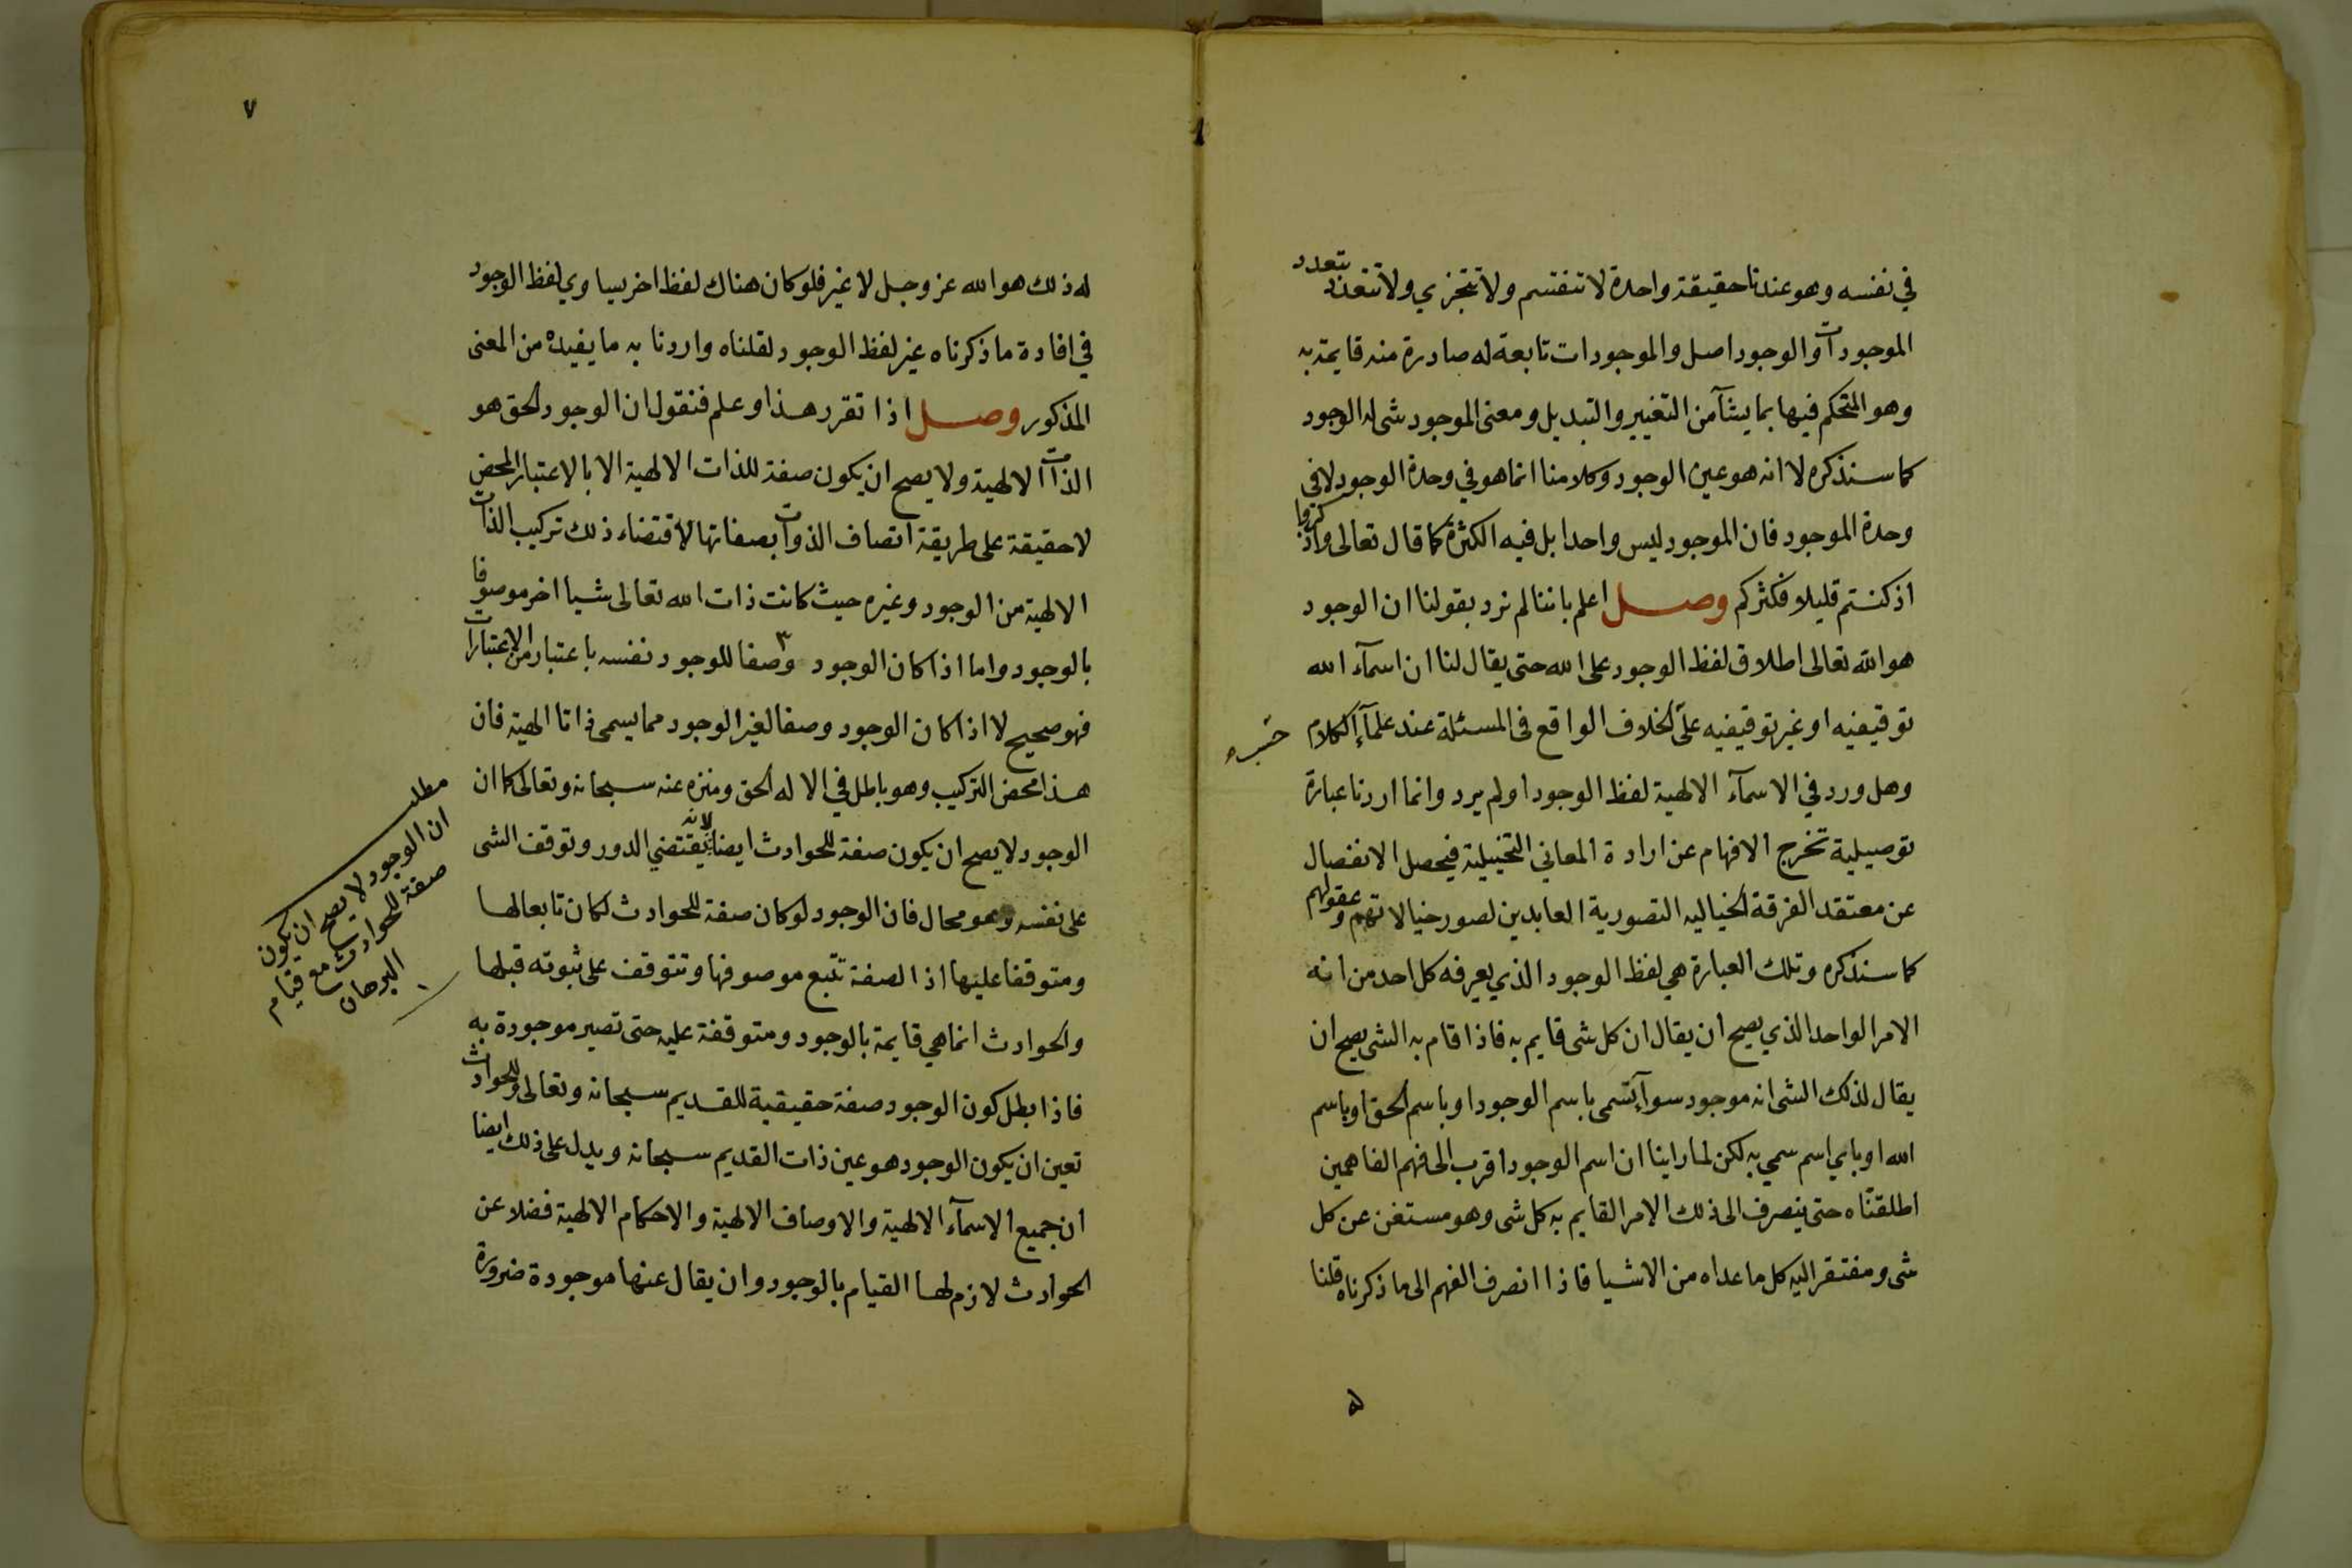 في نفسه وهو عندنا حقيقة واحدة لا تنقسم ولا تتجزي ولا تتعدد بتعدد
الموجودات والوجود اصل والموجودات تابعة له صادرة منه قايمة به
وهو المتحكم فيها بما يشآ من التغيير والتبديل ومعنى الموجود شى له الوجود
كما سنذكره لا انه هو عين الوجود وكلامنا انما هو في وحدة الوجود لا في
وحدة الموجود فان الموجود ليس واحدا بل فيه الكثرة كما قال تعالى واذكروا
اذ كنتم قليلا فكثركم وصل اعلم باننا لم نرد بقولنا ان الوجود
هو الله تعالى اطلاق لفظ الوجود على الله حتى يقال لنا ان اسمآء الله
توقيفيه او غير توقيفيه على الخلاف الواقع فى المسئلة عند علمآء الكلام
وهل ورد في الاسمآء الالهية لفظ الوجود او لم يرد وانما اردنا عبارة
توصيلية تخرج الافهام عن ارادة المعاني التخييلية فيحصل الانفصال
عن معتقد الفرقة الخياليه التصورية العابدين لصور خيالاتهم وعقولهم
كما سنذكره وتلك العبارة هي لفظ الوجود الذي يعرفه كل احد من انه
الامر الواحد الذي يصح ان يقال ان كل شى قايم به فاذا قام به الشى يصح ان
يقال لذلك الشى انه موجود سوآء تسمى باسم الوجود او باسم الحق او باسم
الله او باي اسم سمي به لكن لما راينا ان اسم الوجود اقرب الى فهم الفاهمين
اطلقناه حتى ينصرف الى ذلك الامر القايم به كل شى وهو مستغن عن كل
شى ومفتقر اليه كل ما عداه من الاشيا فاذا انصرف الفهم الى ما ذكرناه قلنا
له
٧
له ذلك هو الله عز وجل لا غير فلو كان هناك لفظ اخر يساوي لفظ الوجود
في افادة ما ذكرناه غير لفظ الوجود لقلناه واردنا به ما يفيده من المعنى
المذكور وصل اذا تقرر هذا وعلم فنقول ان الوجود الحق هو
الذات الالهية ولا يصح ان يكون صفة للذات الالهية الا بالاعتبار المحض
لا حقيقة على طريقة اتصاف الذوات بصفاتها لاقتضاء ذلك تركيب الذات
الالهية من الوجود وغيره حيث كانت ذات الله تعالى شيا اخر موصوفا
بالوجود واما اذا كان الوجود وصفا للوجود نفسه باعتبار من الاعتبارات
فهو صحيح لا اذا كان الوجود وصفا لغير الوجود مما يسمى ذاتا الهية فان
هذا محض التركيب وهو باطل في الاله الحق ومنزه عنه سبحانه وتعالى كما ان
الوجود لا يصح ان يكون صفة للحوادث ايضا لانه يقتضي الدور وتوقف الشى
على نفسه وهو محال فان الوجود لو كان صفة للحوادث لكان تابعا لها
ومتوقفا عليها اذ الصفة تتبع موصوفها وتتوقف على ثبوته قبلها
والحوادث انما هي قايمة بالوجود ومتوقفة عليه حتى تصير موجودة به
فاذا بطل كون الوجود صفة حقيقية للقديم سبحانه وتعالى وللحوادث
تعين ان يكون الوجود هو عين ذات القديم سبحانه ويدل على ذلك ايضا
ان جميع الاسمآء الالهية والاوصاف الالهية والاحكام الالهية فضلا عن
الحوادث لازم لها القيام بالوجود وان يقال عنها موجودة ضرورة
مطلب
ان الوجود لا يصح ان يكون
صفة للحوادث مع قيام
البرهان